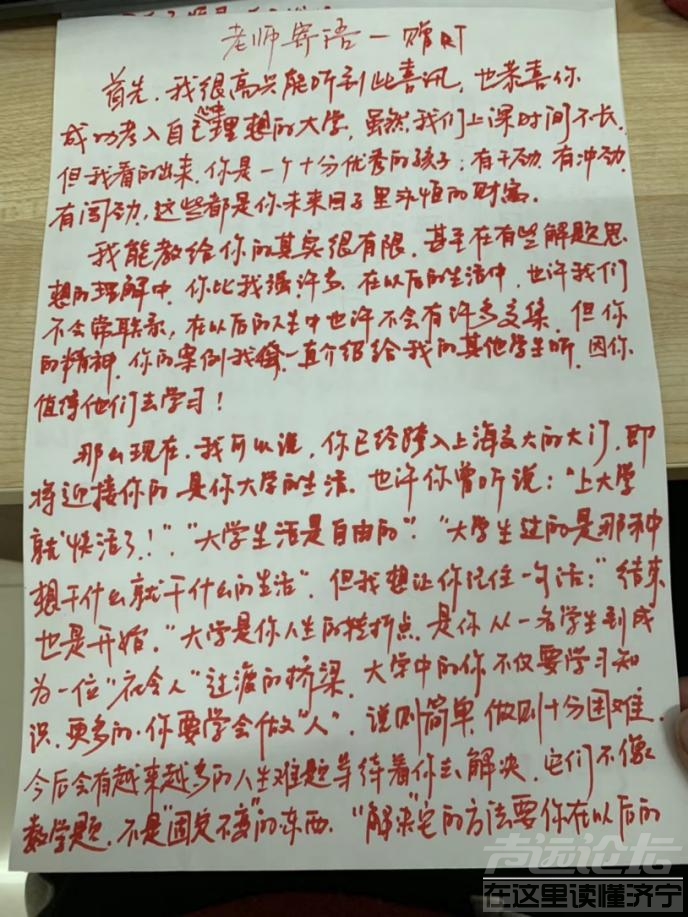 老师寄语一赠
首先,我很高兴能听到此喜讯,也恭喜你
成功考入自己心中理想的大学,虽然我们上课时间不长,
但我看的出来,你是一个十分优秀的孩子:有干劲,有冲劲,
有闯劲,这些都是你未来日子里永恒的财富。
我能教给你的其实很有限,甚至在有些解题思
想的理解中,你比我强许多,在以后的生活中,也许我们
不会常联系,在以后的人生中也许不会有许多交集,但你
的精神,你的案例我一直介绍给我的其他学生听,因你
值得他们去学习!
那么现在,我可以说,你已经跨入上海交大的大门,即
将迎接你的是你大学的生活,也许你曾听说:"上大学
就"快活了!","大学生活是自由的","大学生过的是那种
想干什么就干什么的生活",但我想让你记住一句话:"结束
也是开始","大学是你人生的转折点,是你从一名学生到成
为一位"社会人"过渡的桥梁,大学中的你不仅要学习知
识,更多的,你要学会做"人",说则简单,做则十分困难,
今后会有越来越多的人生难题等待着你去解决,它们不像
数学题,不是"固定不变"的东西,"解决"它的方法要你在以后的
声远论坛
在这里读懂济宁